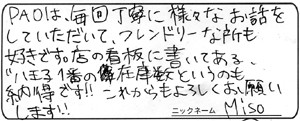 PAOは、毎回丁寧に様々なお話を
していただいて、フレンドリーな所も
好きです。店の看板に書いてある、
"八王子1番の在庫数"というのも
納得です!! これからもよろしくお願い
します!!
ニックネーム Miso